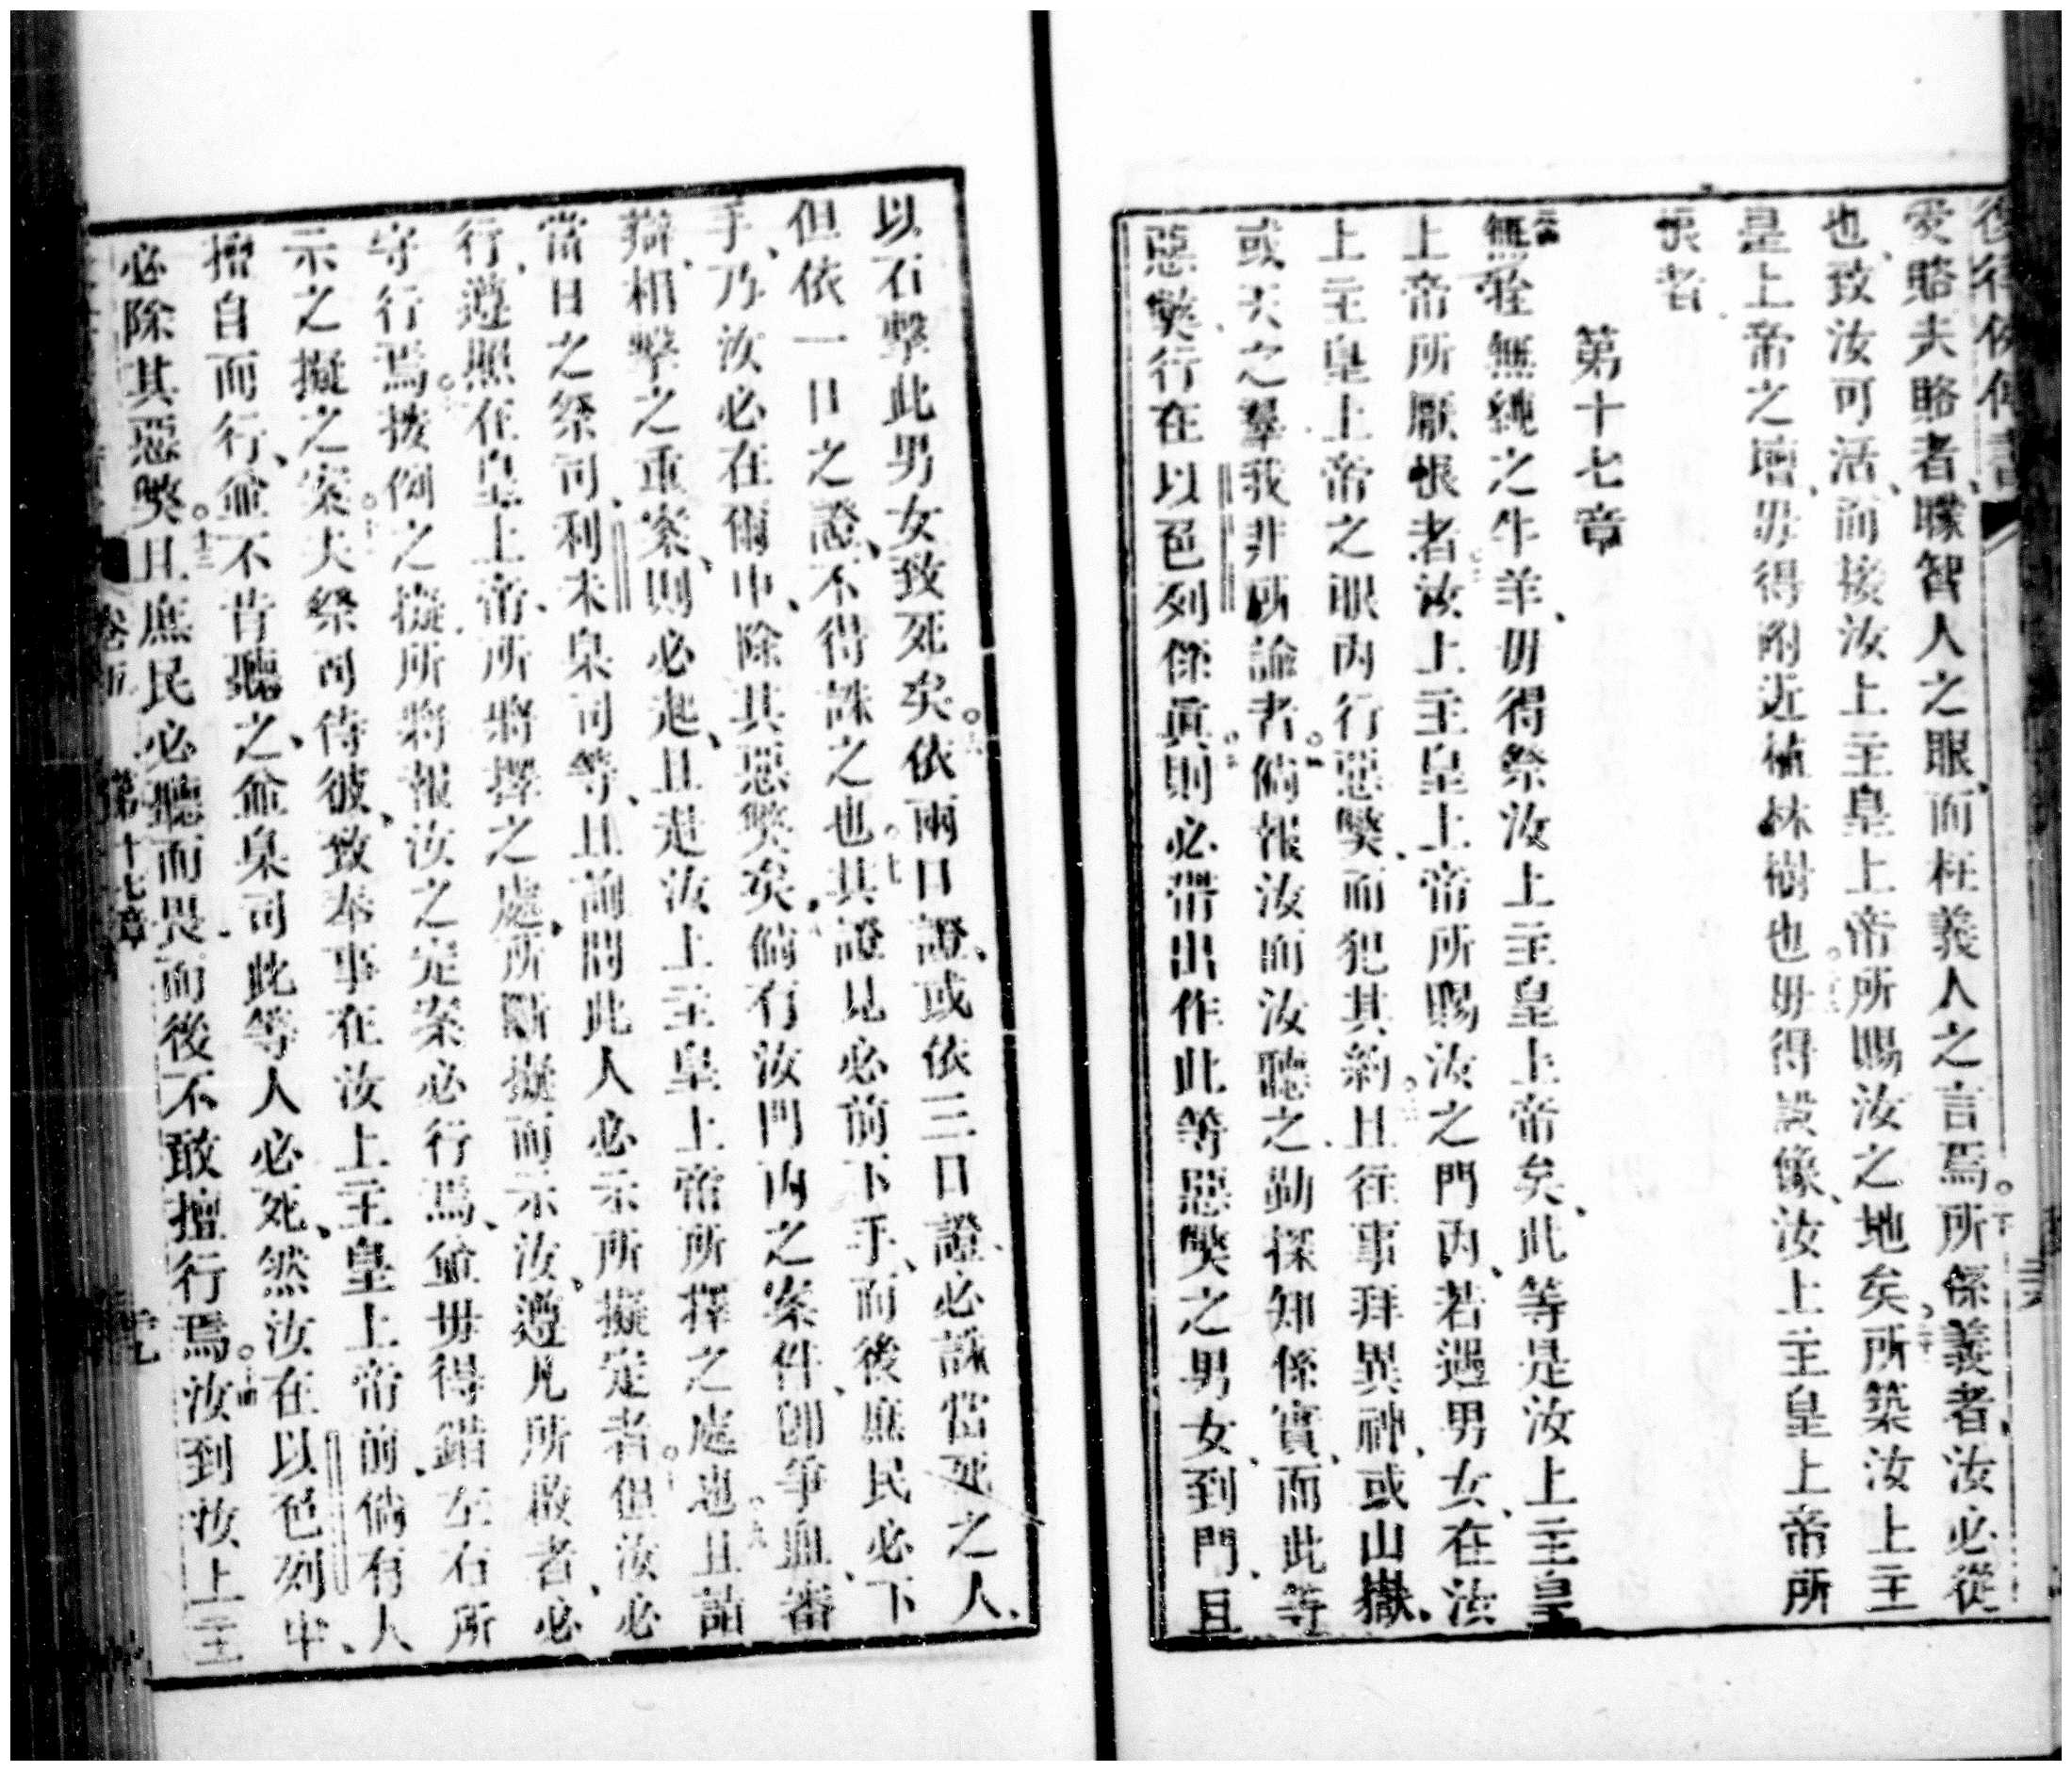 復得後傳書
愛賂夫賂者矇智人之眼而枉義人之言焉所係義者汝必從
也致汝可活而接汝上主皇上帝所賜汝之地矣所築汝上主
皇上帝之壇毋得附近植林樹也毋得設像汝上主皇上帝所
恨者
第十七章
無瑕無純之牛羊毋得祭汝上主皇上帝矣此等是汝上主皇
上帝所厭恨者汝上主皇上帝所賜汝之門內若遇男女在汝
上主皇上帝之眼內行惡獘而犯其約且往事拜異神或山嶽
或天之羣我非所諭者倘報汝而汝聽之勤探知係實而此等
惡獘行在以色列係眞則必帶出作此等惡獘之男女到門且
以石擊此男女致死矣依兩口證或依三口證必誅當死之人
但依一口之證不得誅之也其證見必前下手而後庶民必下
手乃汝必在爾中除其惡獘矣倘有汝門內之案件卽爭血審
辯相擊之重案則必起且進汝上主皇上帝所擇之處也且詣
當日之祭司利未臬司等且前問此人必示所擬定者但汝必
行遵照在皇上帝所將擇之處所斷擬而示汝遵凡所啟者必
守行焉按例之擬所將報汝之定案必行焉並毋得錯左右所
示之擬之案夫祭司侍彼致奉事在汝上主皇上帝前倘有人
擅自而行並不肯聽之並臬司此等人必死然汝在以色列中
必除其惡獘且庶民必聽而畏而後不敢擅行焉汝到汝上主
卷五 第十七章